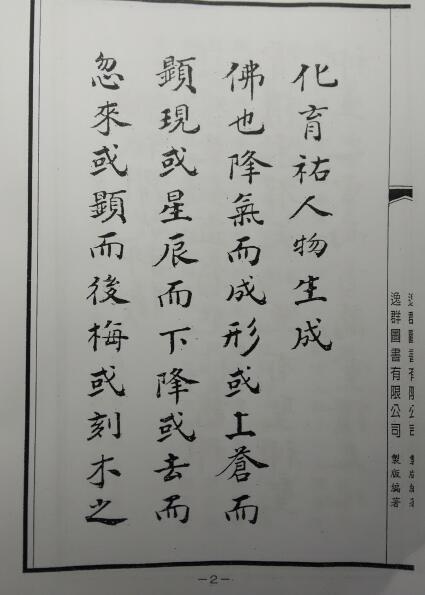 逸群圖書有限公司 製版編著
逸群圖書有限公司 製版編著
化育祐人物生成
佛也降氣而成形或上蒼而
顕現或星辰而下降或去而
忽來或顕而後梅或刻木之
-2-